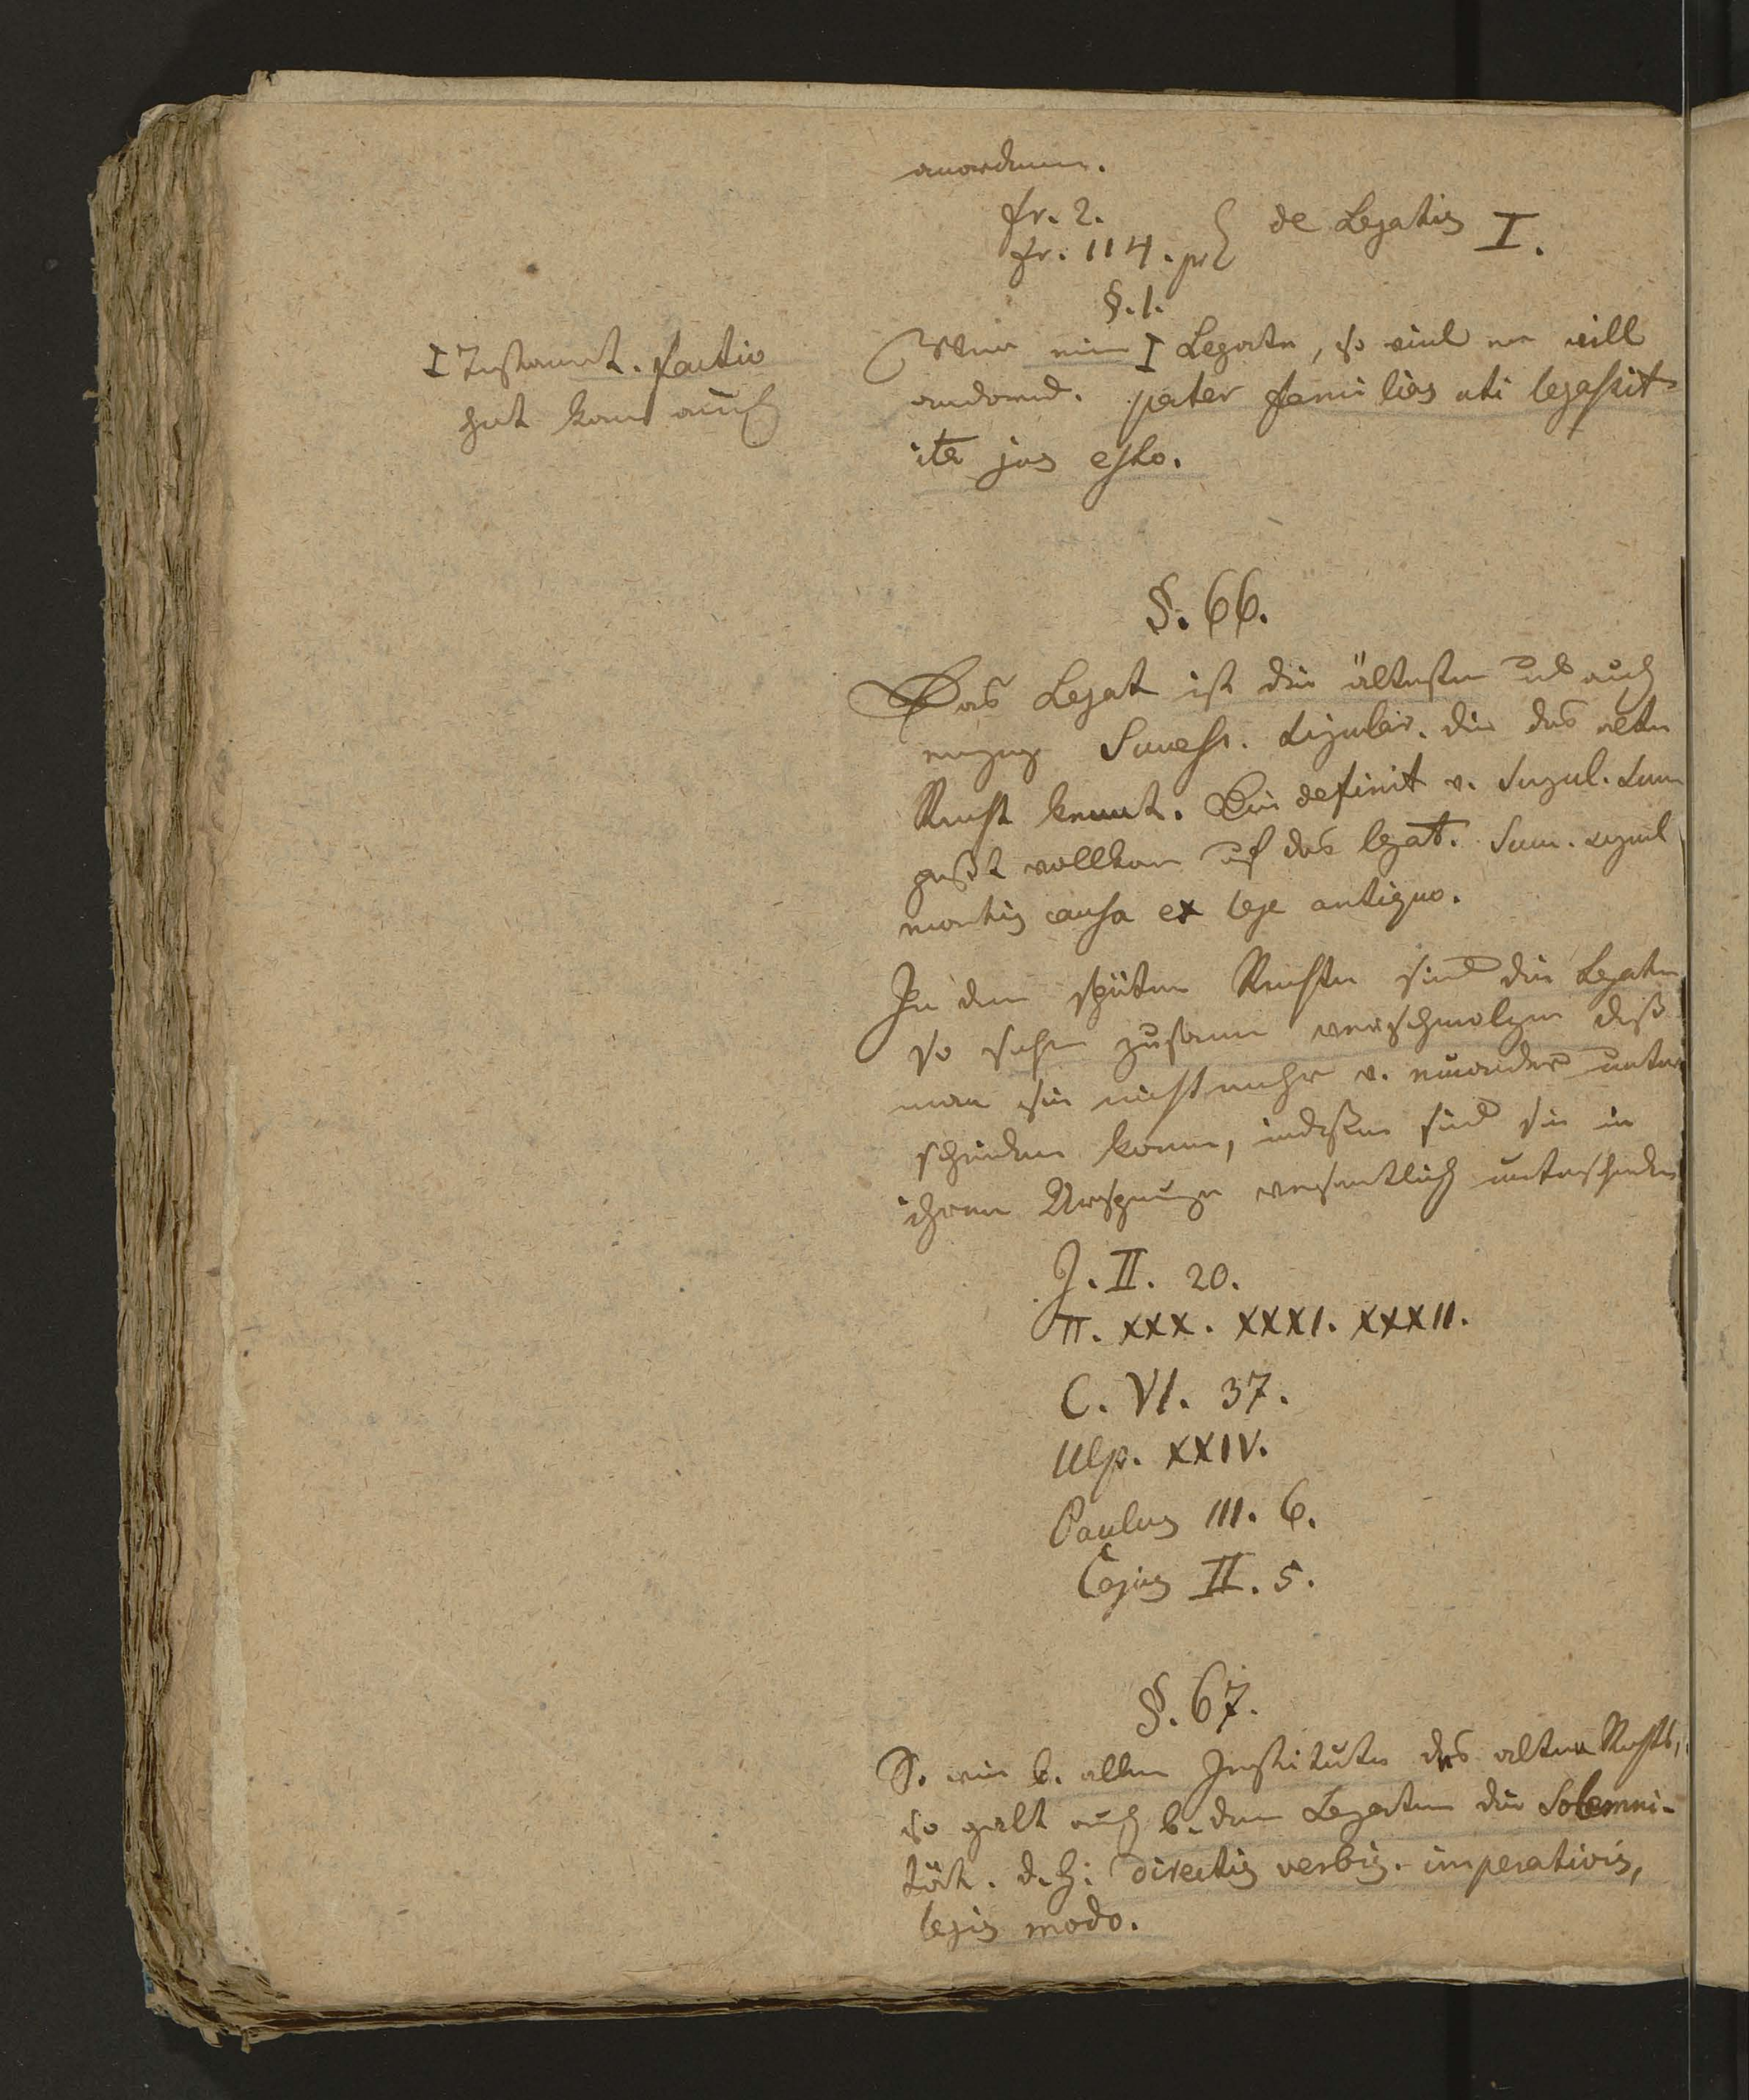 anordnen.
fr. 2.
fr. 114. pr } de Legatis I.
§. 1.
I Testament. factio
hat kann auch
Wer ein I Legate, so viel er will
anordn. pater familias uti legassit
ita jus esto.
§. 66.
Das Legat ist die älteste und auch
einzige Success. singular. die das alte
Recht kennt. Die definit v. singul. Succ
paßt vollkom auf das legat. Succ. singul
mortis causa ex lege antiqua.
In dem späten Rechte sind die Legate
so sehr zusamen verschmolzen daß
man sie nicht mehr v. einander unter
scheiden kann, indessen sind sie in
ihrem Ursprunge wesentlich unterschieden
J. II. 20.
π. XXX. XXXI. XXXII.
C. VI. 37.
Ulp. XXIV.
Paulus III. 6.
Cajus II. 5.
§. 67.
So wie b. allen Institute des alten Rechts,
so galt auch b. den Legaten die Solemni-
tät. d. h: directis verbis. imperativis,
legis modo.